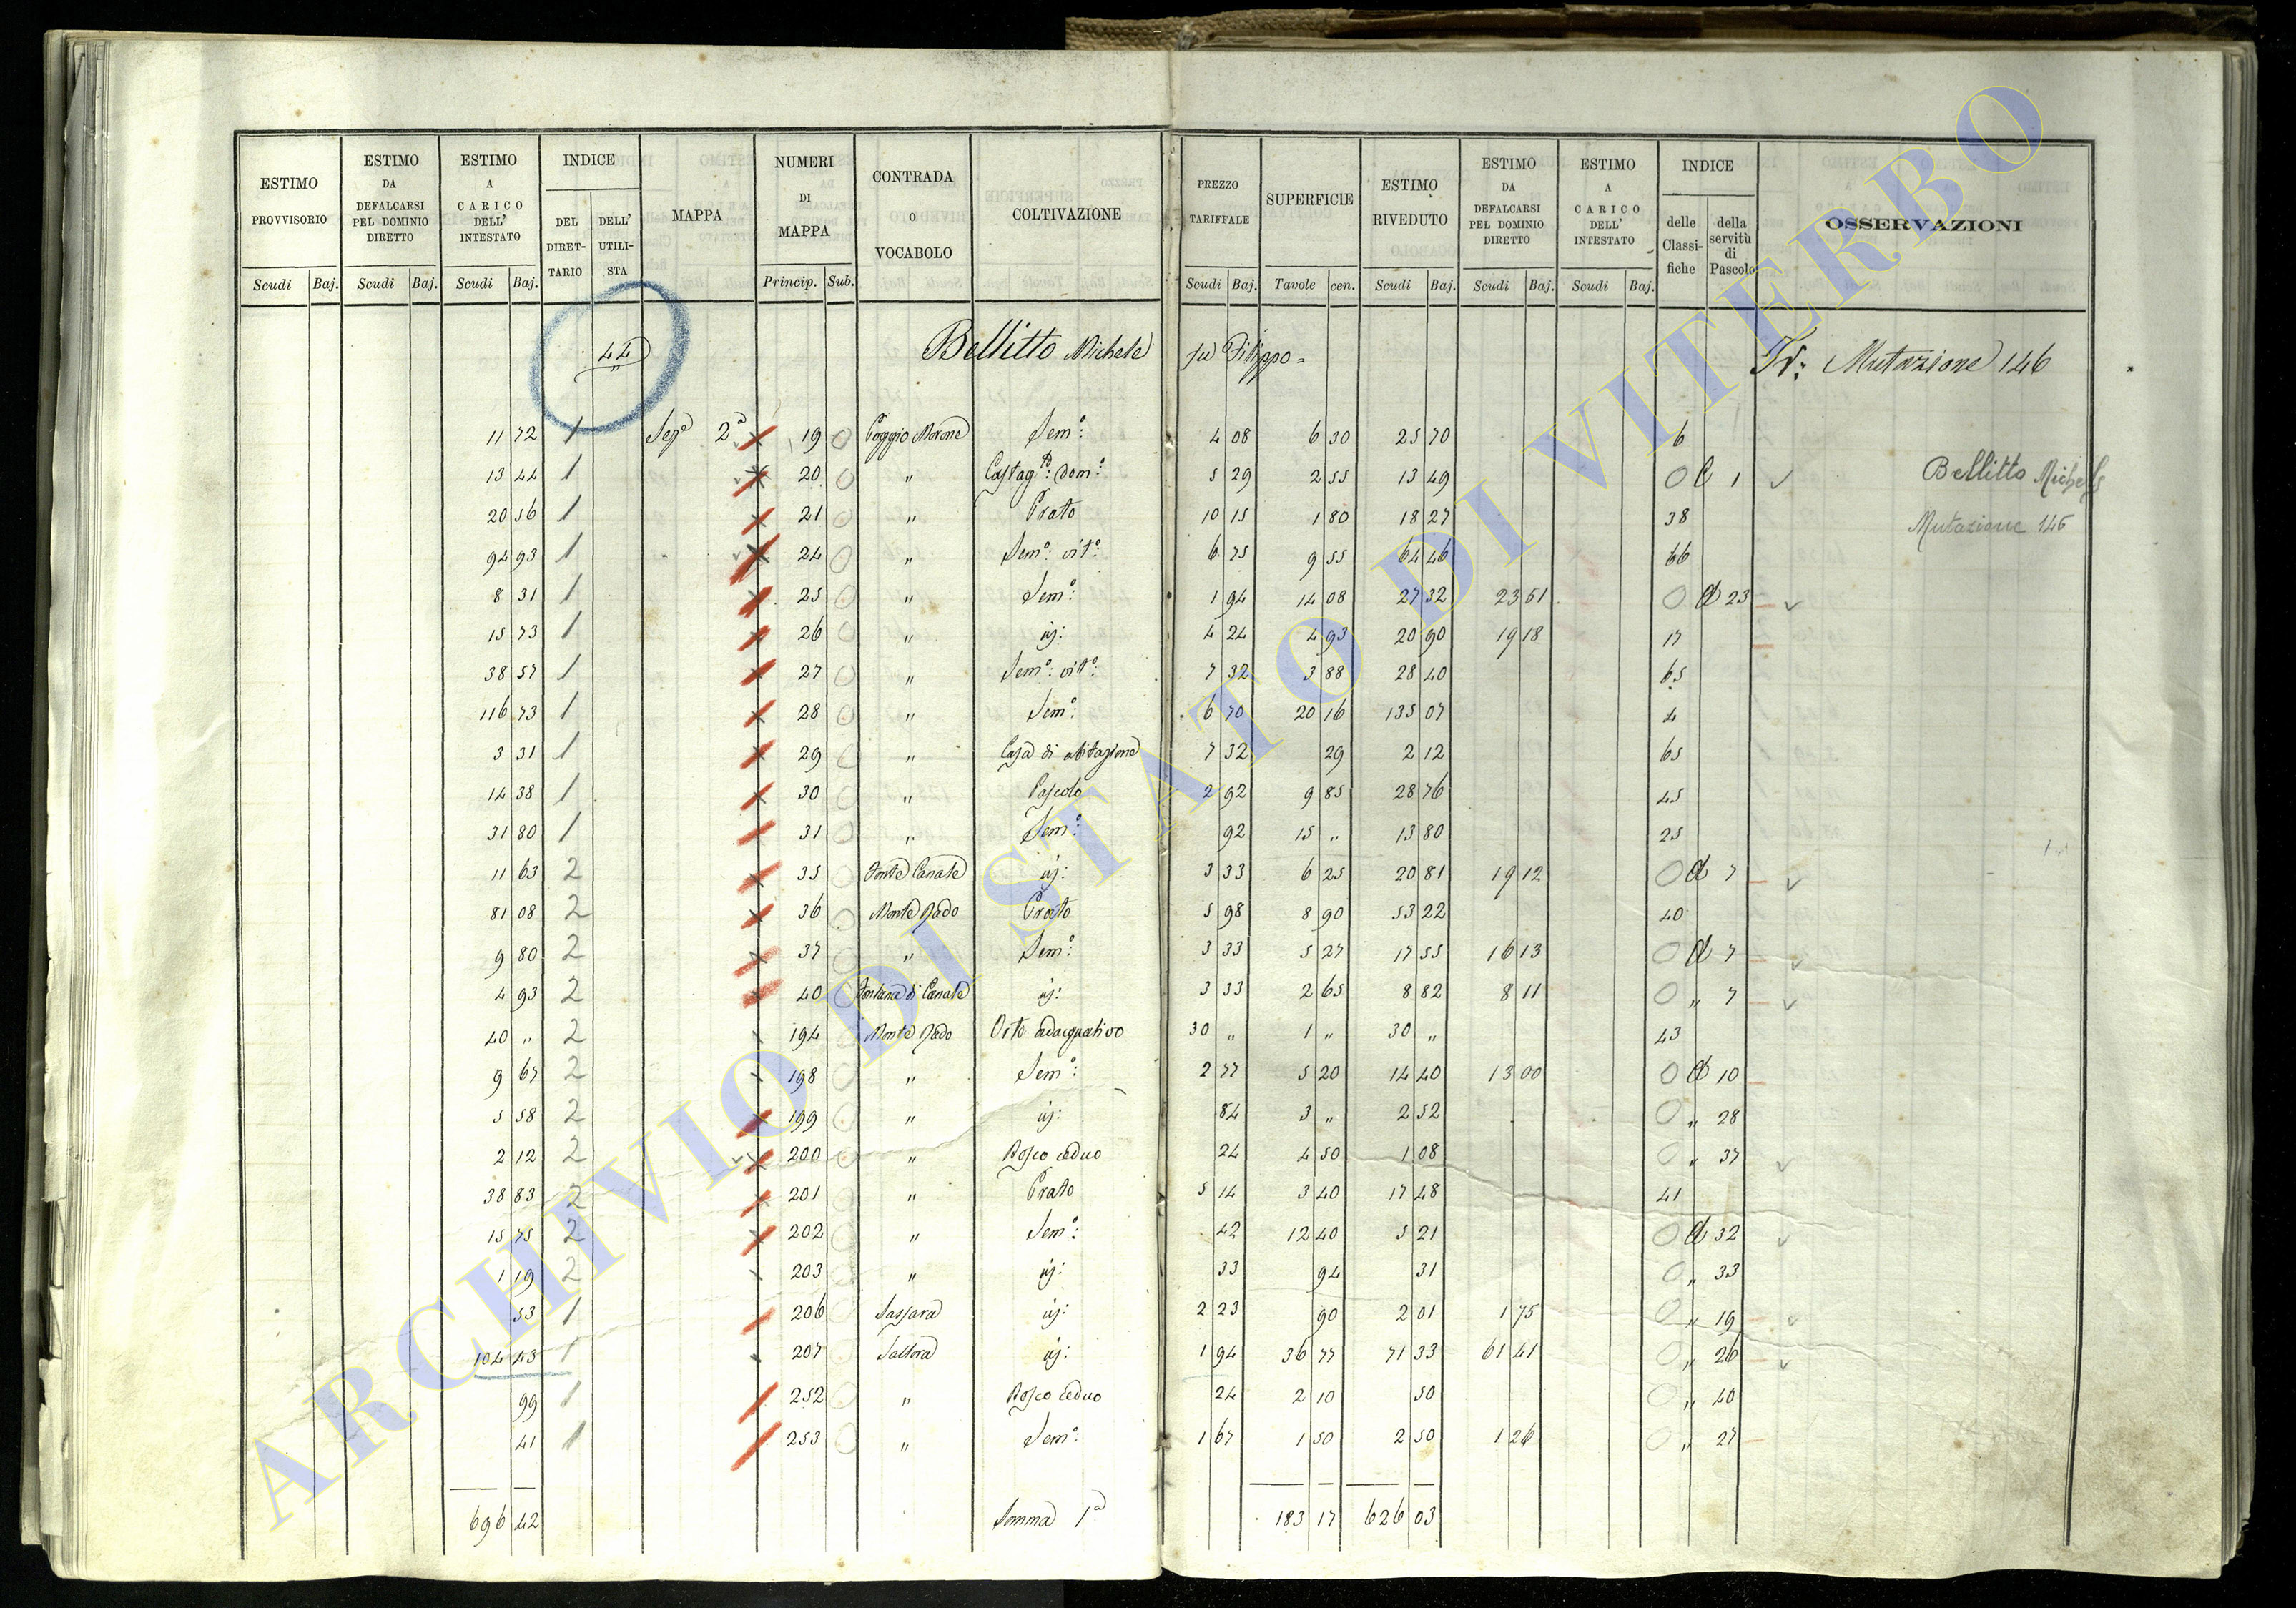 ESTIMO PROVVISORIO | ESTIMO DA DEFALCARSI PEL DOMINIO DIRETTO | ESTIMO A CARICO DELL' INTESTATO | INDICE DEL DIRETTARIO | DELL' UTILISTA | MAPPA | NUMERI DI MAPPA | CONTRADA O VOCABOLO | COLTIVAZIONE | PREZZO TARIFFALE | SUPERFICIE | ESTIMO RIVEDUTO | ESTIMO DA DEFALCARSI PEL DOMINIO DIRETTO | ESTIMO A CARICO DELL' INTESTATO | INDICE delle Classifiche | della servitù di Pascolo | OSSERVAZIONI
Scudi | Baj. | Scudi | Baj. | Scudi | Baj. | Princip. | Sub. | Scudi | Baj. | Tavole | cen. | Scudi | Baj. | Scudi | Baj. | Scudi | Baj.
44 Bellitto Michele fu Filippo = Tr: Mutazione 146
11 72 1 Sezᵉ 2ª 19 0 Poggio Morone Semº: 4 08 6 30 25 70 6
13 44 1 20 0 " Castagᵗᵒ: domº: 5 29 2 55 13 49 0 C 1 Bellitto Michele
20 56 1 21 0 " Prato 10 15 1 80 18 27 38 Mutazione 146
94 93 1 24 0 " Semº: vitº: 6 75 9 55 64 46 66
8 31 1 25 0 " Semº: 1 94 14 08 27 32 23 51 0 d 23
15 73 1 26 0 " id: 4 24 4 93 20 90 19 18 17
38 57 1 27 0 " Semº: vitº: 7 32 3 88 28 40 65
116 73 1 28 0 " Semº: 6 70 20 16 135 07 4
3 31 1 29 0 " Casa di abitazione 7 32 29 2 12 65
14 38 1 30 0 " Pascolo 2 92 9 85 28 76 45
31 80 1 31 0 " Semº: 92 15 " 13 80 25
11 63 2 35 0 Fonte Canale id: 3 33 6 25 20 81 19 12 0 d 7
81 08 2 36 0 Monte Rado Prato 5 98 8 90 53 22 40
9 80 2 37 0 " Semº: 3 33 5 27 17 55 16 13 0 d 7
4 93 2 40 0 Fontana di Canale id: 3 33 2 65 8 82 8 11 0 " 7
40 " 2 194 Monte Rado Orto adacquativo 30 " 1 " 30 " 43
9 67 2 198 0 " Semº: 2 77 5 20 14 40 13 00 0 d 10
5 58 2 199 0 " id: 84 3 " 2 52 0 " 28
2 12 2 200 0 " Bosco ceduo 24 4 50 1 08 0 " 37
38 83 2 201 0 " Prato 5 14 3 40 17 48 41
15 75 2 202 0 " Semº: 42 12 40 5 21 0 d 32
1 19 2 203 0 " id: 33 94 31 0 " 33
53 1 206 0 Sassara id: 2 23 90 2 01 1 75 0 " 19
104 43 1 207 id: 1 94 36 77 71 33 61 41 0 " 26
99 1 252 0 " Bosco ceduo 24 2 10 50 0 " 40
41 1 253 0 " Semº: 1 67 1 50 2 50 1 26 0 " 27
696 42 Somma 1ª 183 17 626 03
ARCHIVIO DI STATO DI VITERBO